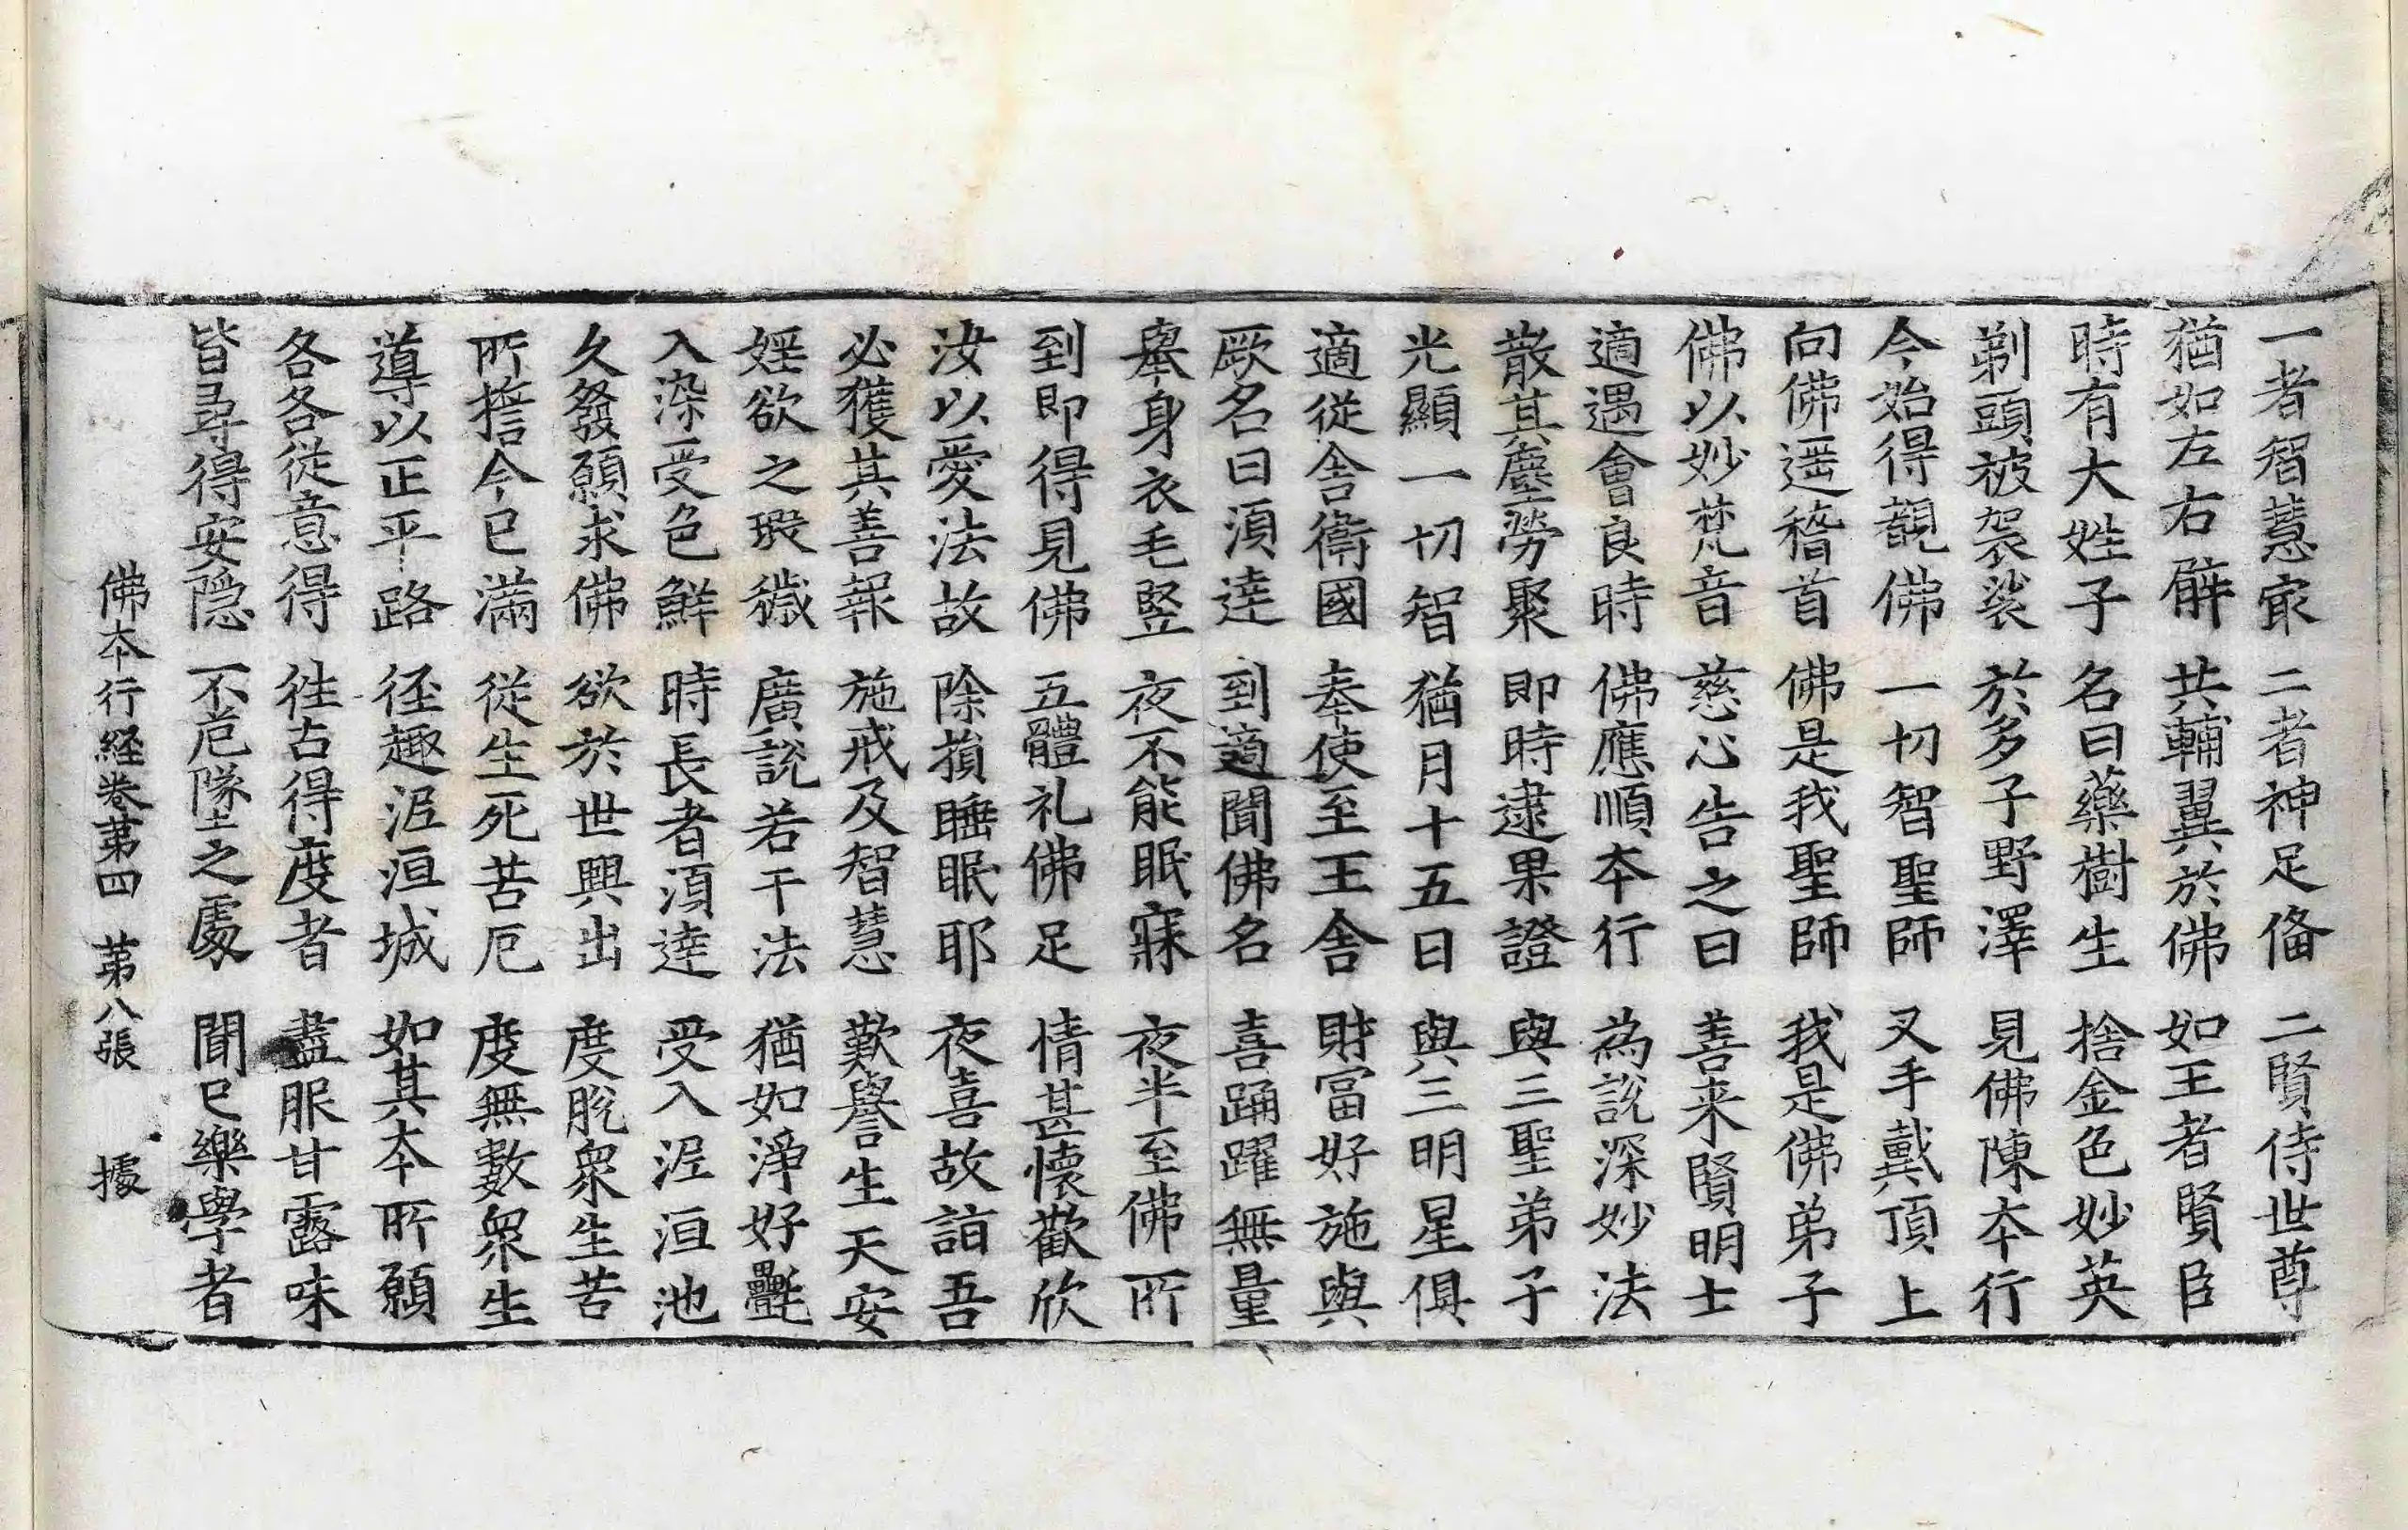 一者智慧㝡　二者神足俻　二賢侍世尊
猶如左右臂　共輔翼於佛　如王者賢臣
時有大姓子　名曰藥樹生　捨金色妙英
剃頭被袈裟　於多子野澤　見佛陳夲行
今始得覩佛　一切智聖師　叉手戴頂上
向佛遥稽首　佛是我聖師　我是佛弟子
佛以妙梵音　慈心告之曰　善来賢明士
適遇會良時　佛應順夲行　為說深妙法
散其塵勞聚　即時逮果證　與三聖弟子
光顯一切智　猶月十五日　與三明星俱
適從舍衛國　奉使至王舍　財富好施與
厥名曰湏達　到適聞佛名　喜踊躍無量
舉身衣毛竪　夜不能眠寐　夜半至佛所
到即得見佛　五體礼佛足　情甚懷歡欣
汝以愛法故　除損睡眠耶　夜喜故詣吾
必獲其善報　施戒及智慧　歎譽生天安
婬欲之瑕穢　廣說若干法　猶如淨好㲲
入染受色鮮　時長者湏達　受入泥洹池
久發願求佛　欲於世興出　度脫衆生苦
所擔今已滿　從生死苦厄　度無數衆生
導以正平路　徑趣泥洹城　如其夲所願
各各從意得　往古得度者　盡服甘露味
皆尋得安隱　不危墜之處　聞已樂學者
佛夲行経卷第四　第八張　據